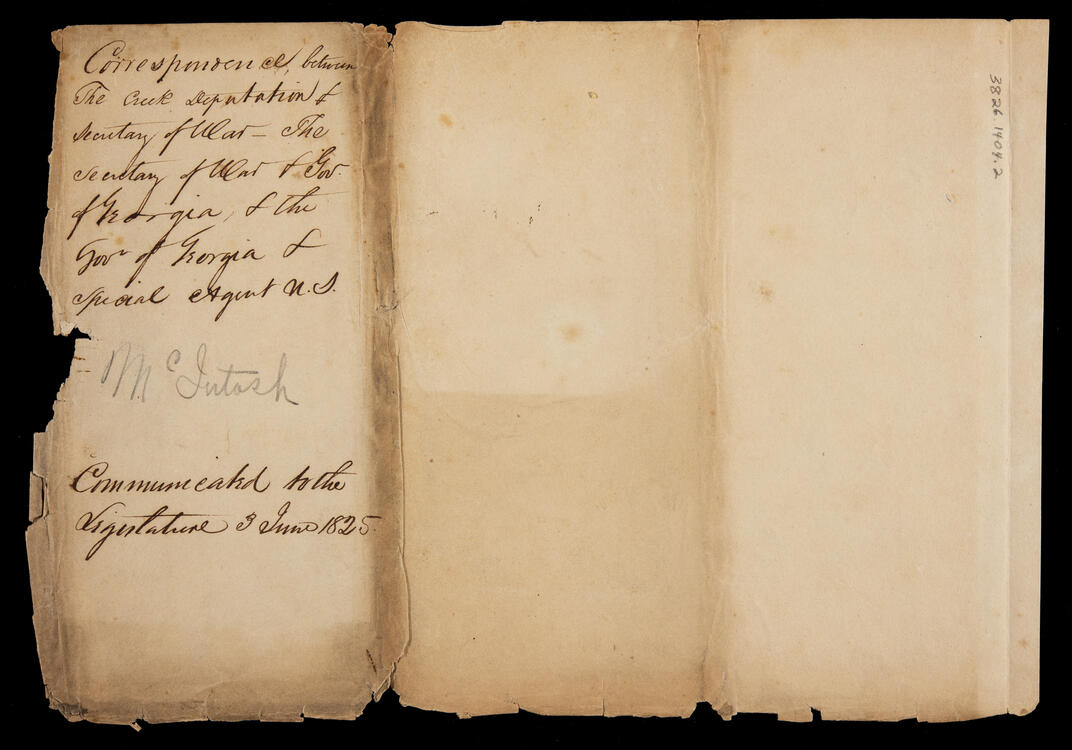 Correspondence, between
The Creek Deputation &
Secretary of War – The
Secretary of War & Gov.
of Georgia, & the
Govr of Georgia &
Special Agent U.S.
McIntosh
Communicated to the
Legislature 3 June 1825.
3826.1404.2